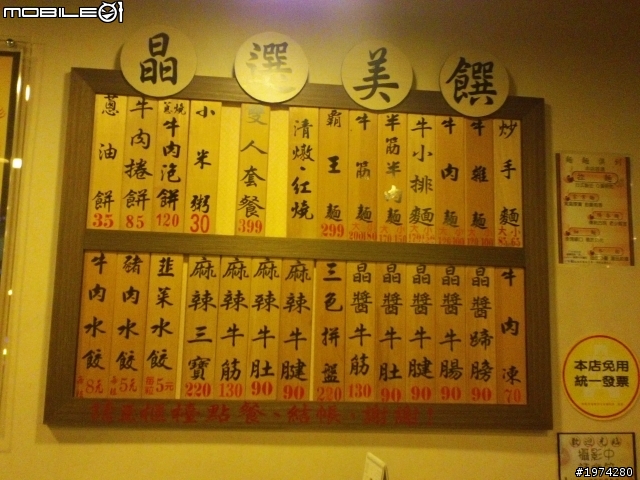 mobile01
晶選美饌
蔥油餅 35
牛肉捲餅 85
牛肉泡餅 120
小米粥 30
人套餐 399
清燉・紅燒
霸王麵 299
牛筋麵
半筋半肉麵
牛小排麵
牛肉麵
牛雜麵
炒手麵
牛肉水餃 8元
豬肉水餃 5元
韭菜水餃 5元
麻辣三寶 220
麻辣牛筋 130
麻辣牛肚 90
麻辣牛腱 90
三色拼盤 220
晶醬牛筋 130
晶醬牛肚 90
晶醬牛腱 90
晶醬牛腸 90
晶醬蹄膀 90
牛肉凍 70
點餐、結帳、謝謝!
本店免用
統一發票
攝影中
#1974280